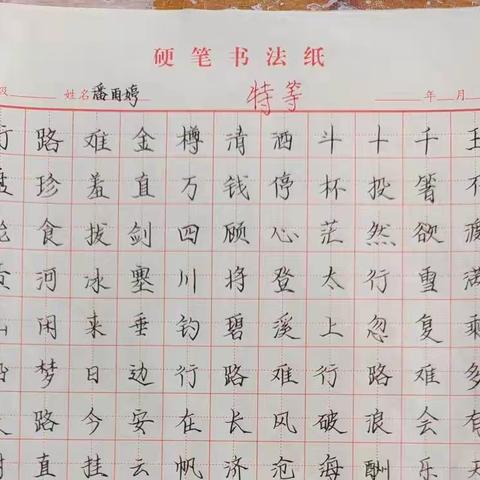 硬笔书法纸
级 姓名 潘雨婷 特等 年 月
行路难金樽清酒斗十千玉
盘珍羞直万钱停杯投箸不
能食拔剑四顾心茫然欲渡
黄河冰塞川将登太行雪满
山闲来垂钓碧溪上忽复乘
舟梦日边行路难行路难多
路今安在长风破浪会有
时直挂云帆济沧海酬乐天